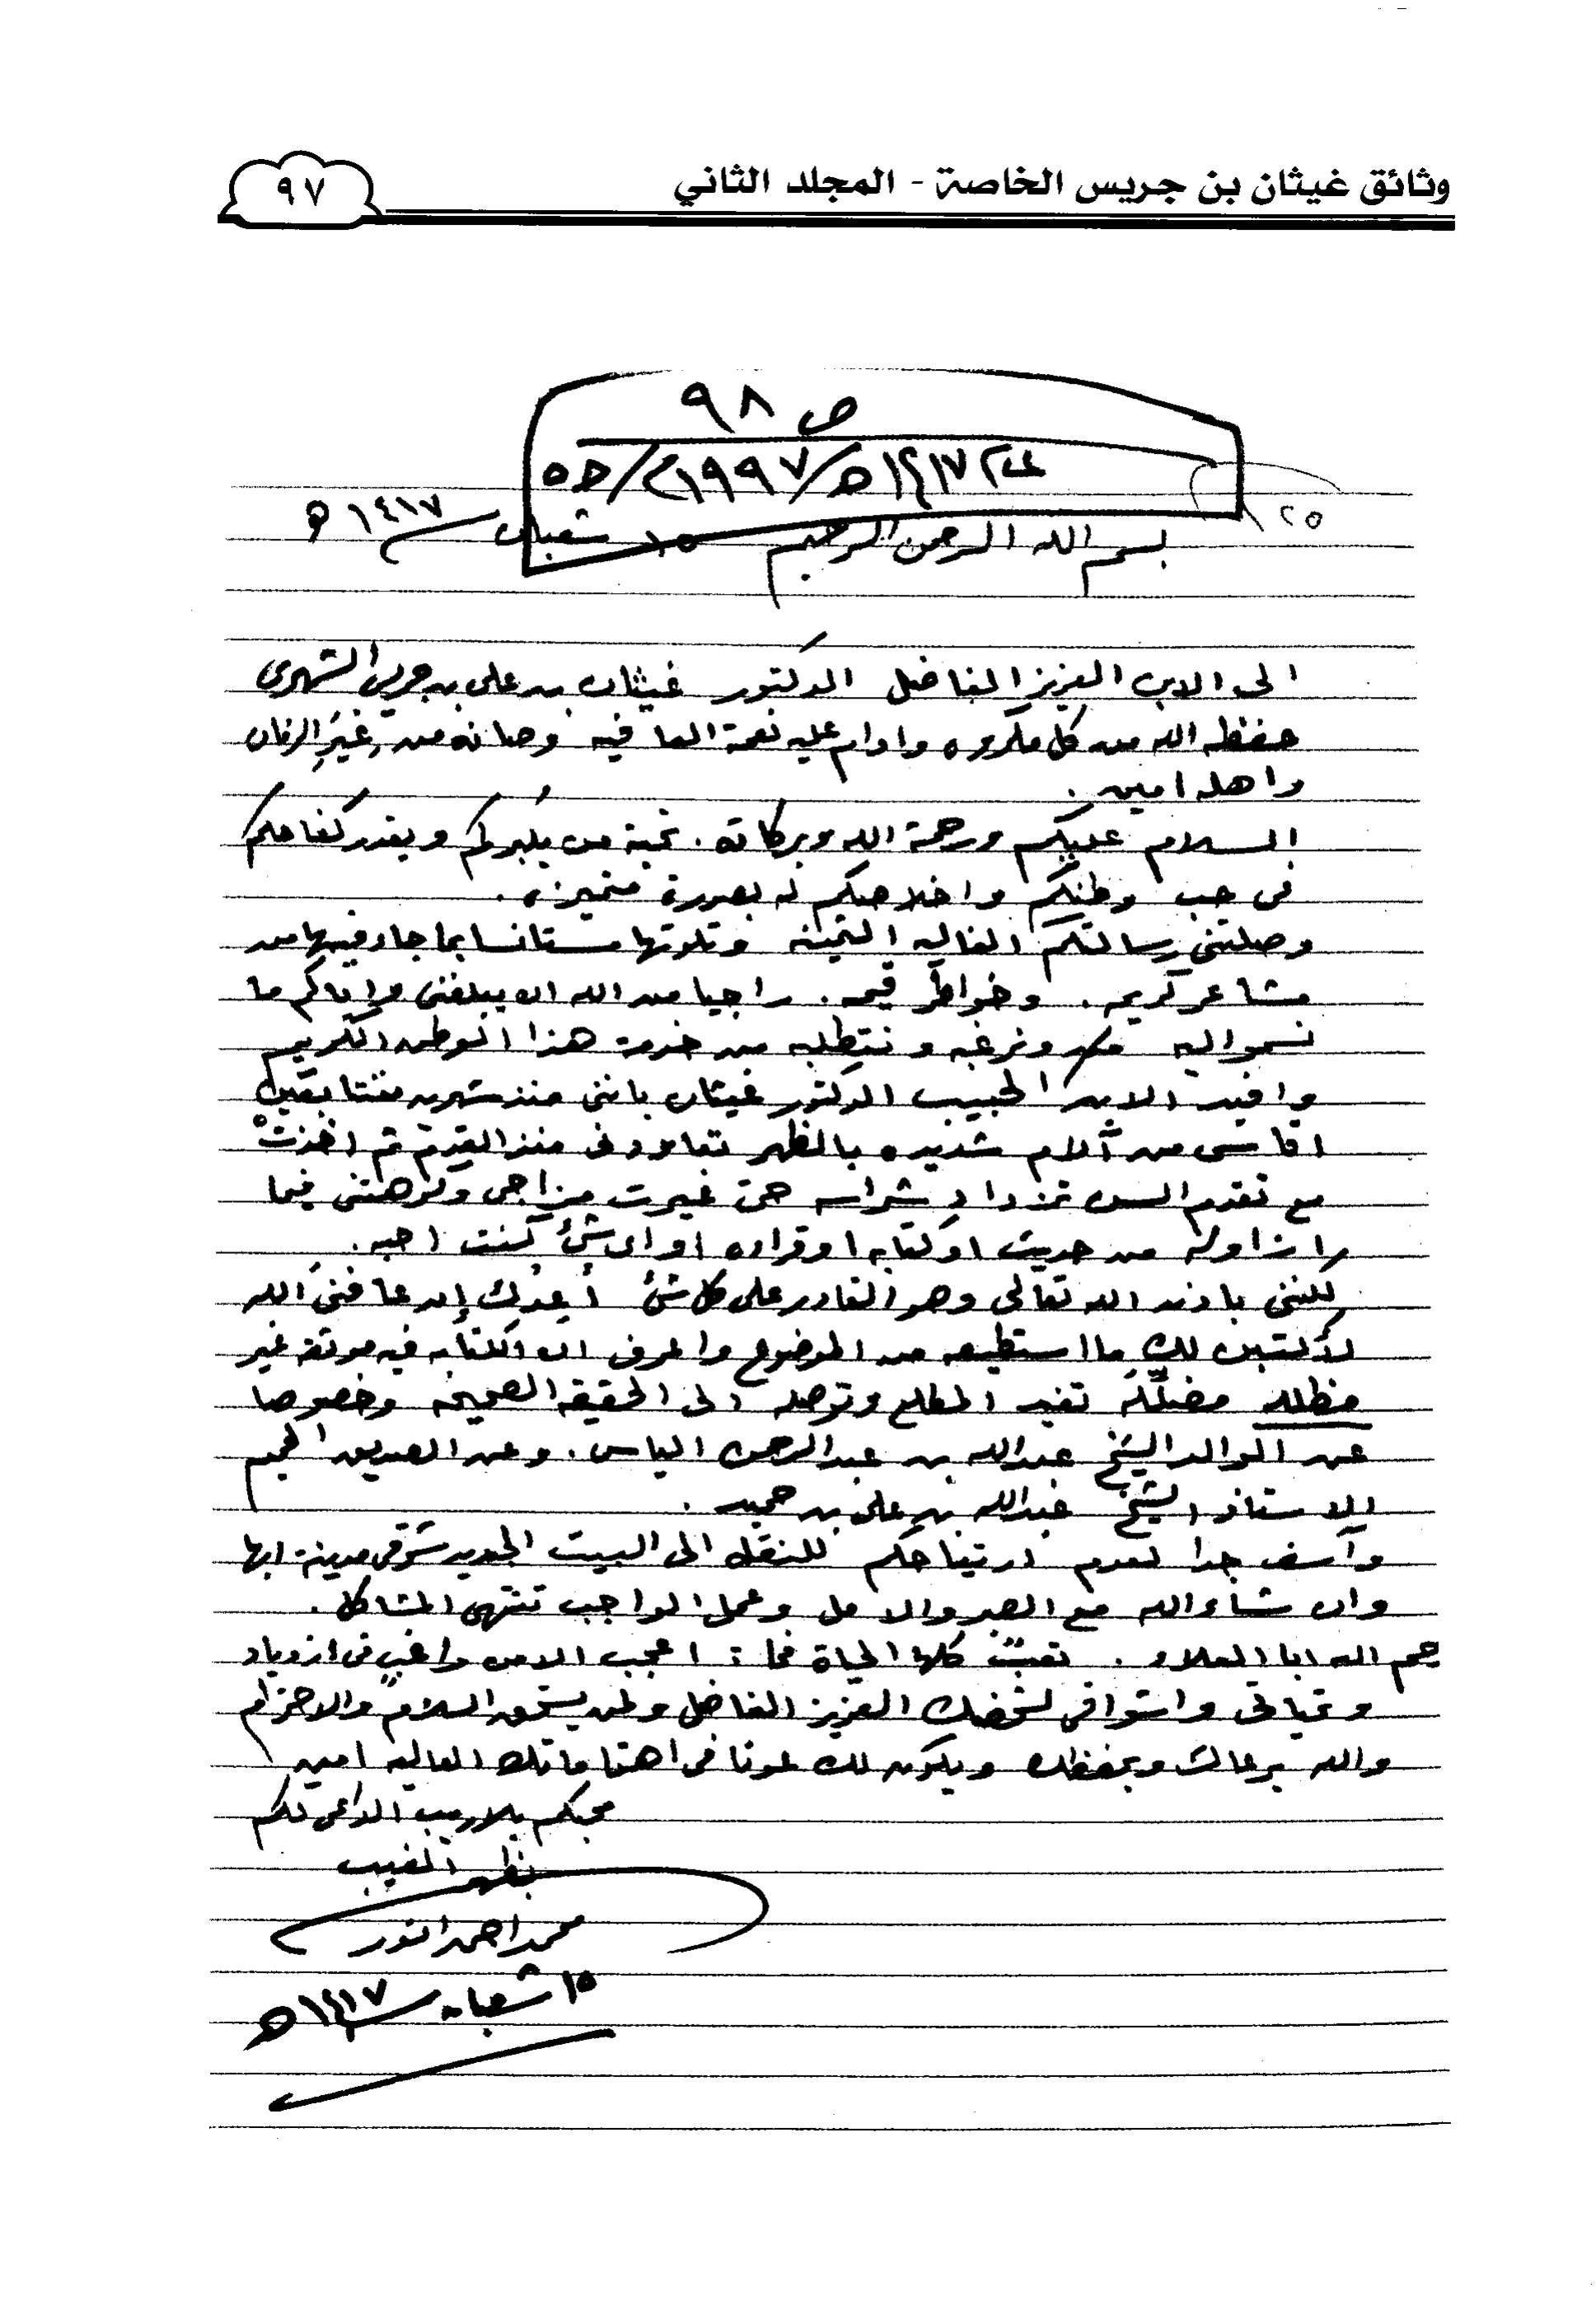 وثائق غيثان بن جريس الخاصة - المجلد الثاني
٩٧
ص ٩٨
١٤١٧هـ/١٩٩٧م/
١٢٥
بسم الله الرحمن الرحيم ١٥ شعبان ١٤١٧ هـ
الى الابن العزيز الفاضل الدكتور غيثان بن علي بن جريس الشهري
حفظه الله من كل مكروه وادام عليه نعمة العافيه وصانه من غِيَرِ الزمان
واهله امين .
السلام عليكم ورحمة الله وبركاته . تحية من يُكبركم ويقدر كفاحكم
في حب وطنكم واخلاصكم له بصورة متميزه .
وصلتني رسالتكم الغاليه الثمينه وتلوتها مستانسا بما جاء فيها من
مشاعر كريمه . وخواطر قيمه . راجيا من الله ان يبلغني واياكم ما
نسموا اليه ونرغبه ونتطلبه من خدمة هذا الوطن الكريم
وافيد الابن الحبيب الدكتور غيثان بانني منذ شهرين متتابعين
اقاسي من آلام شديده بالظهر تعاودني منذ القدم ثم اخذتْ
مع تقدم السن تزداد شراسه حتى غيرت مزاجي وكرهتني فيما
ازاوله من حديث او كتابه او قراءه او اى شئ كنت احبه .
لكنني باذن الله تعالى وهو القادر على كل شئ أعدك إن عافنى الله
لأكتبن لك ما استطيعه من الموضوع واعرف ان الكتابه فيه موثقه غير
مظلله مضلّله تفيد المطلع وتوصله الى الحقيقه الصحيحه وخصوصا
عن الوالد الشيخ عبدالله بن عبدالرحمن الياس . وعن الصديق الحميم
الاستاذ الشيخ عبدالله بن علي بن حميد .
وآسف جدا لعدم ارتياحكم للنقل الى البيت الجديد شرقي مدينة ابها
وان شاء الله مع الصبر والامل وعمل الواجب تنتهي المشاكل .
رحم الله ابا العلاء . تعبٌ كلها الحياة فما : اعجب الا من راغبٍ في ازدياد
وتحياتي واشواقي لشخصك العزيز الفاضل ولمن يستحق السلام والاحترام
والله يرعاك ويحفظك ويكون لك عونا في اهتماماتك العاليه امين
محبكم بلا ريب الداعي لكم
بظهر الغيب
محمد احمد انور
١٥ شعبان ١٤١٧هـ